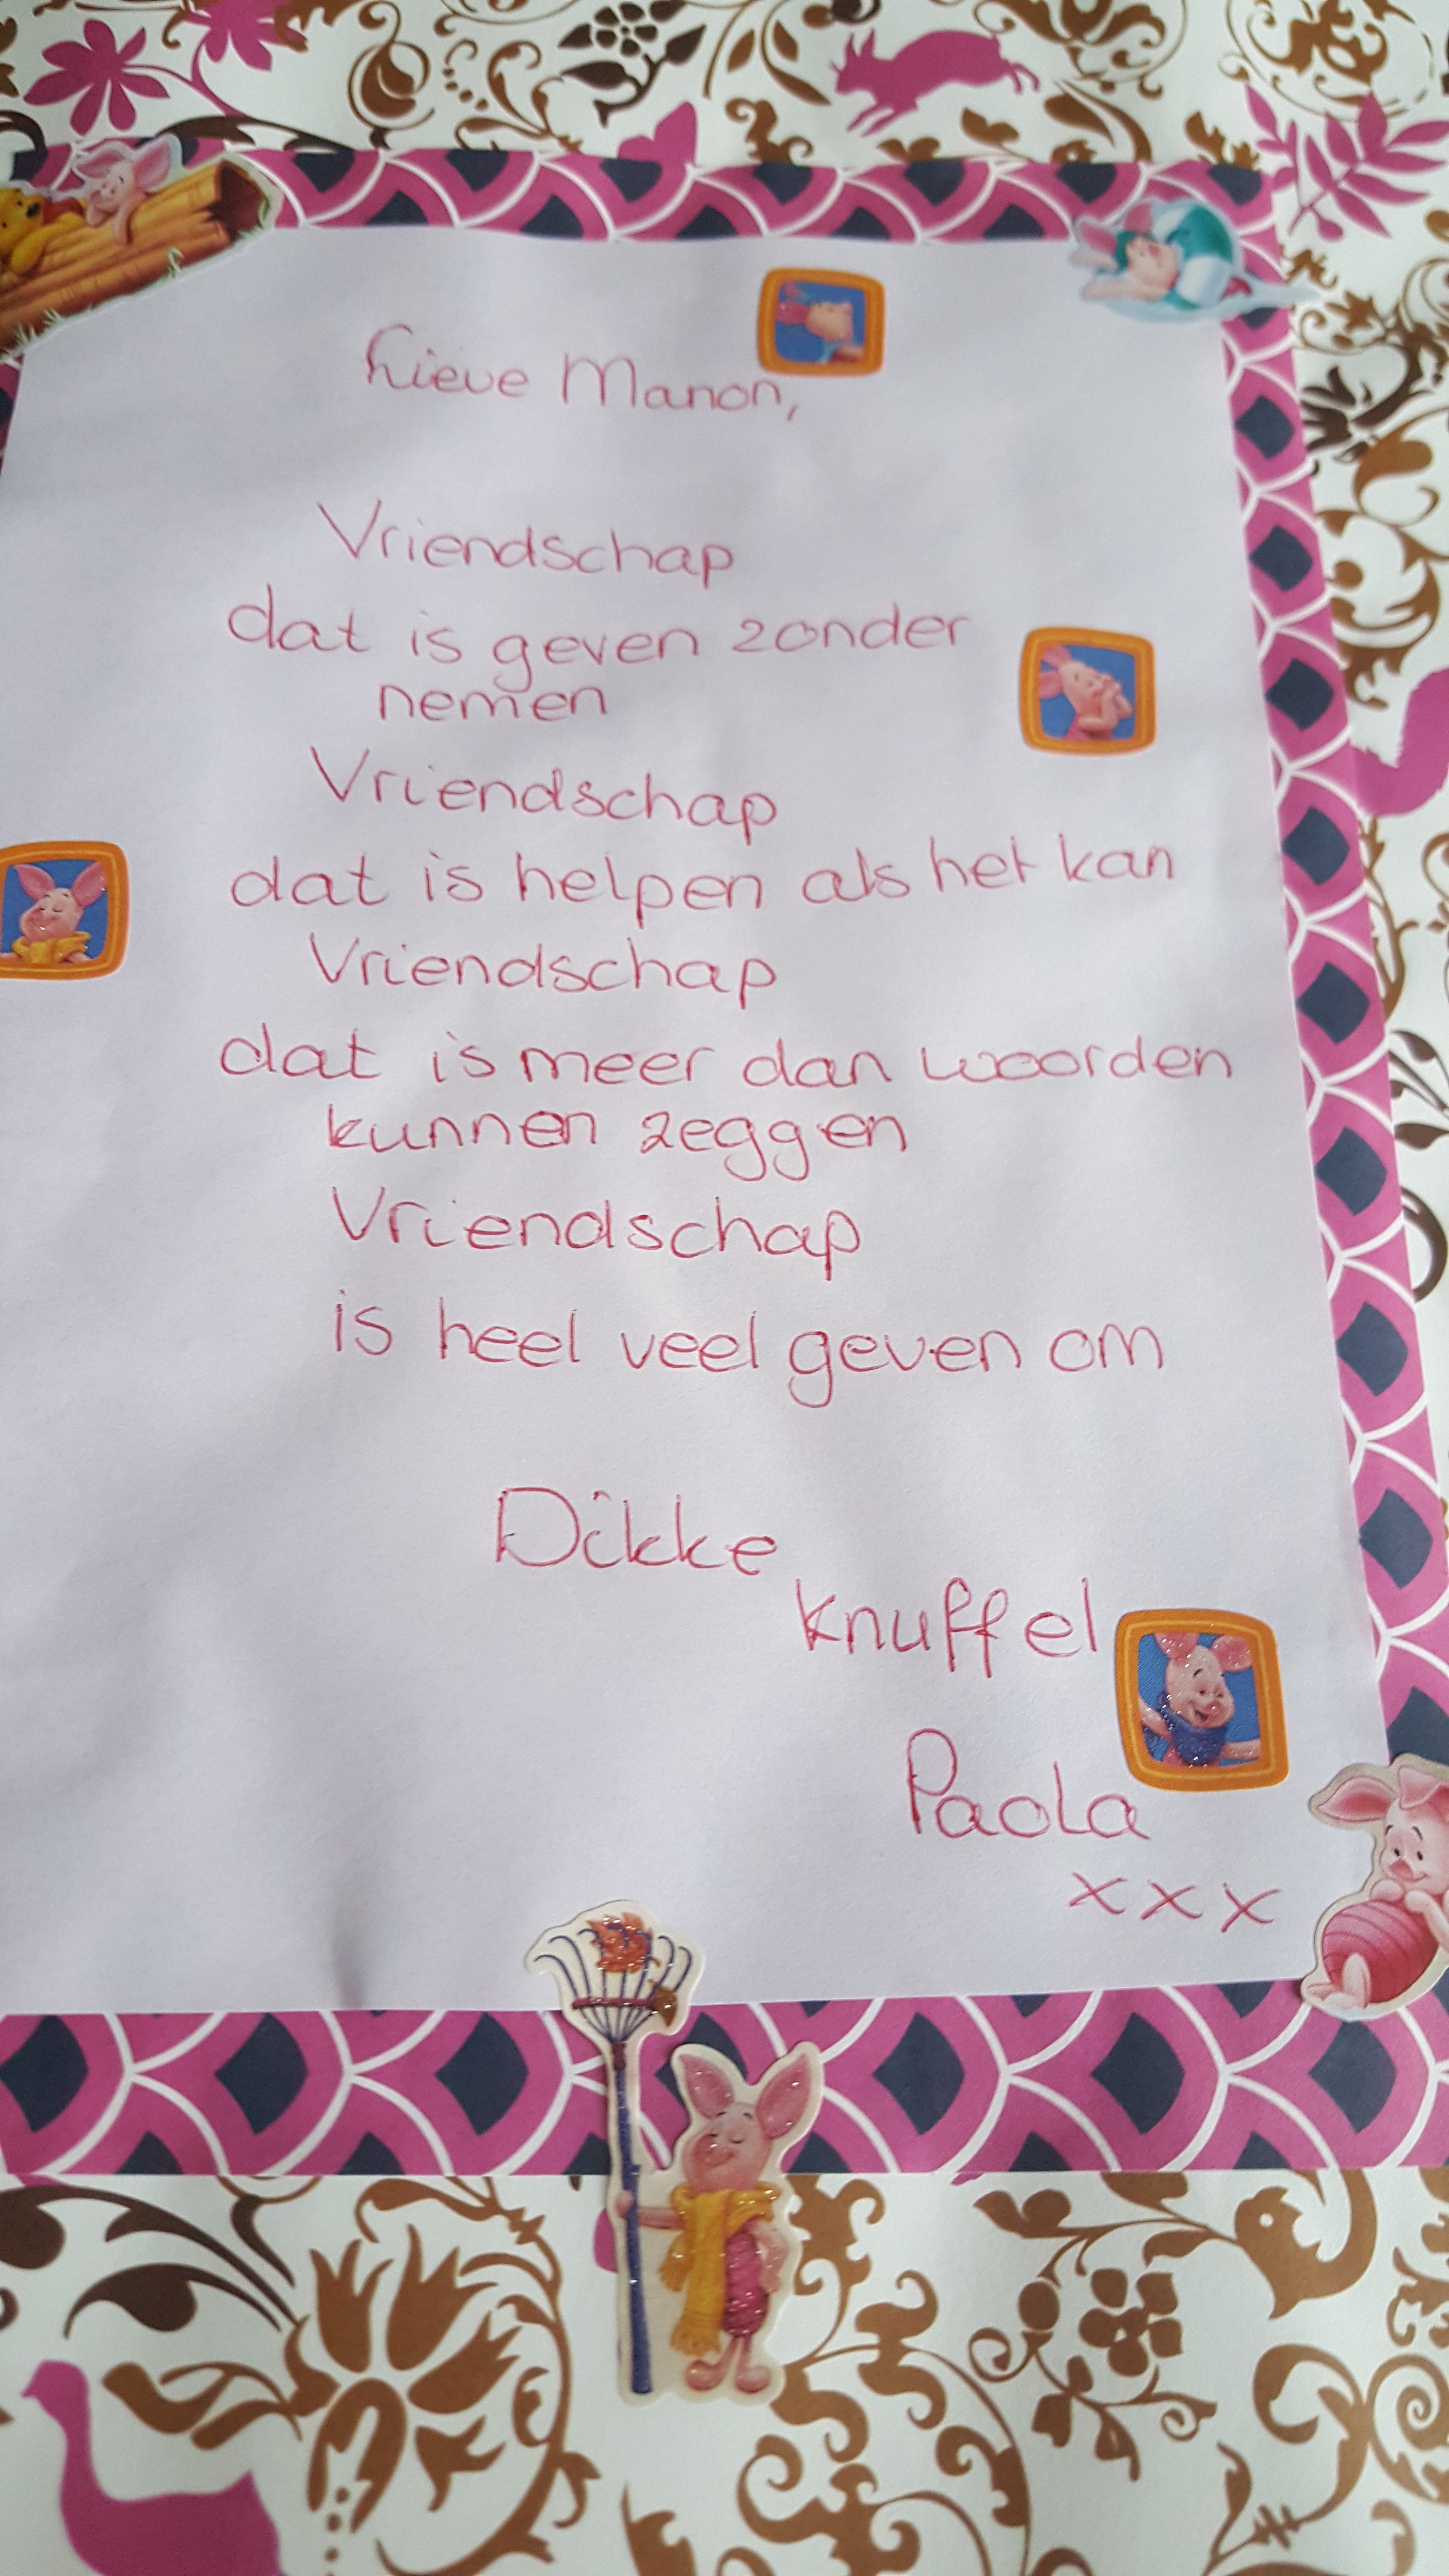 Lieve Manon,
Vriendschap
dat is geven zonder
nemen
Vriendschap
dat is helpen als het kan
Vriendschap
dat is meer dan woorden
kunnen zeggen
Vriendschap
is heel veel geven om
Dikke
knuffel
Paola
xxx